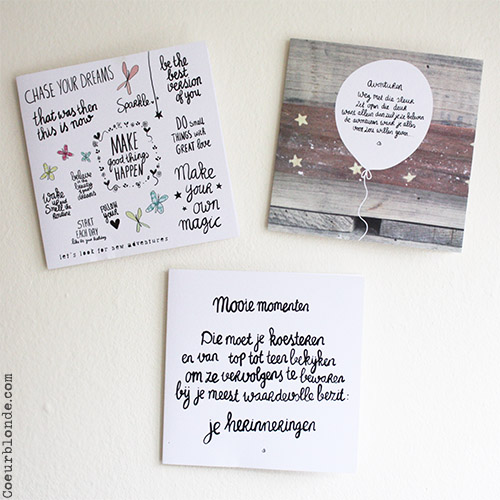 CHASE YOUR DREAMS
that was then
this is now
Sparkle
be the
best
version
of you
MAKE
good things
HAPPEN
DO small
THINGS WITH
GREAT love
believe
in the
beauty
your
dreams
Wake
up and
Smell the
START
EACH DAY
like it's your birthday
FOLLOW
your
Make
your
own
magic
let's look for new adventures
Avonturen
Weg met die sleur
Zet open die deur
Want alleen dan zul je ze beleven
de avonturen waar je alles
voor zou willen geven
Mooie momenten
Die moet je koesteren
en van top tot teen bekijken
om ze vervolgens te bewaren
bij je meest waardevolle bezit:
je herinneringen
Coeurblonde.com